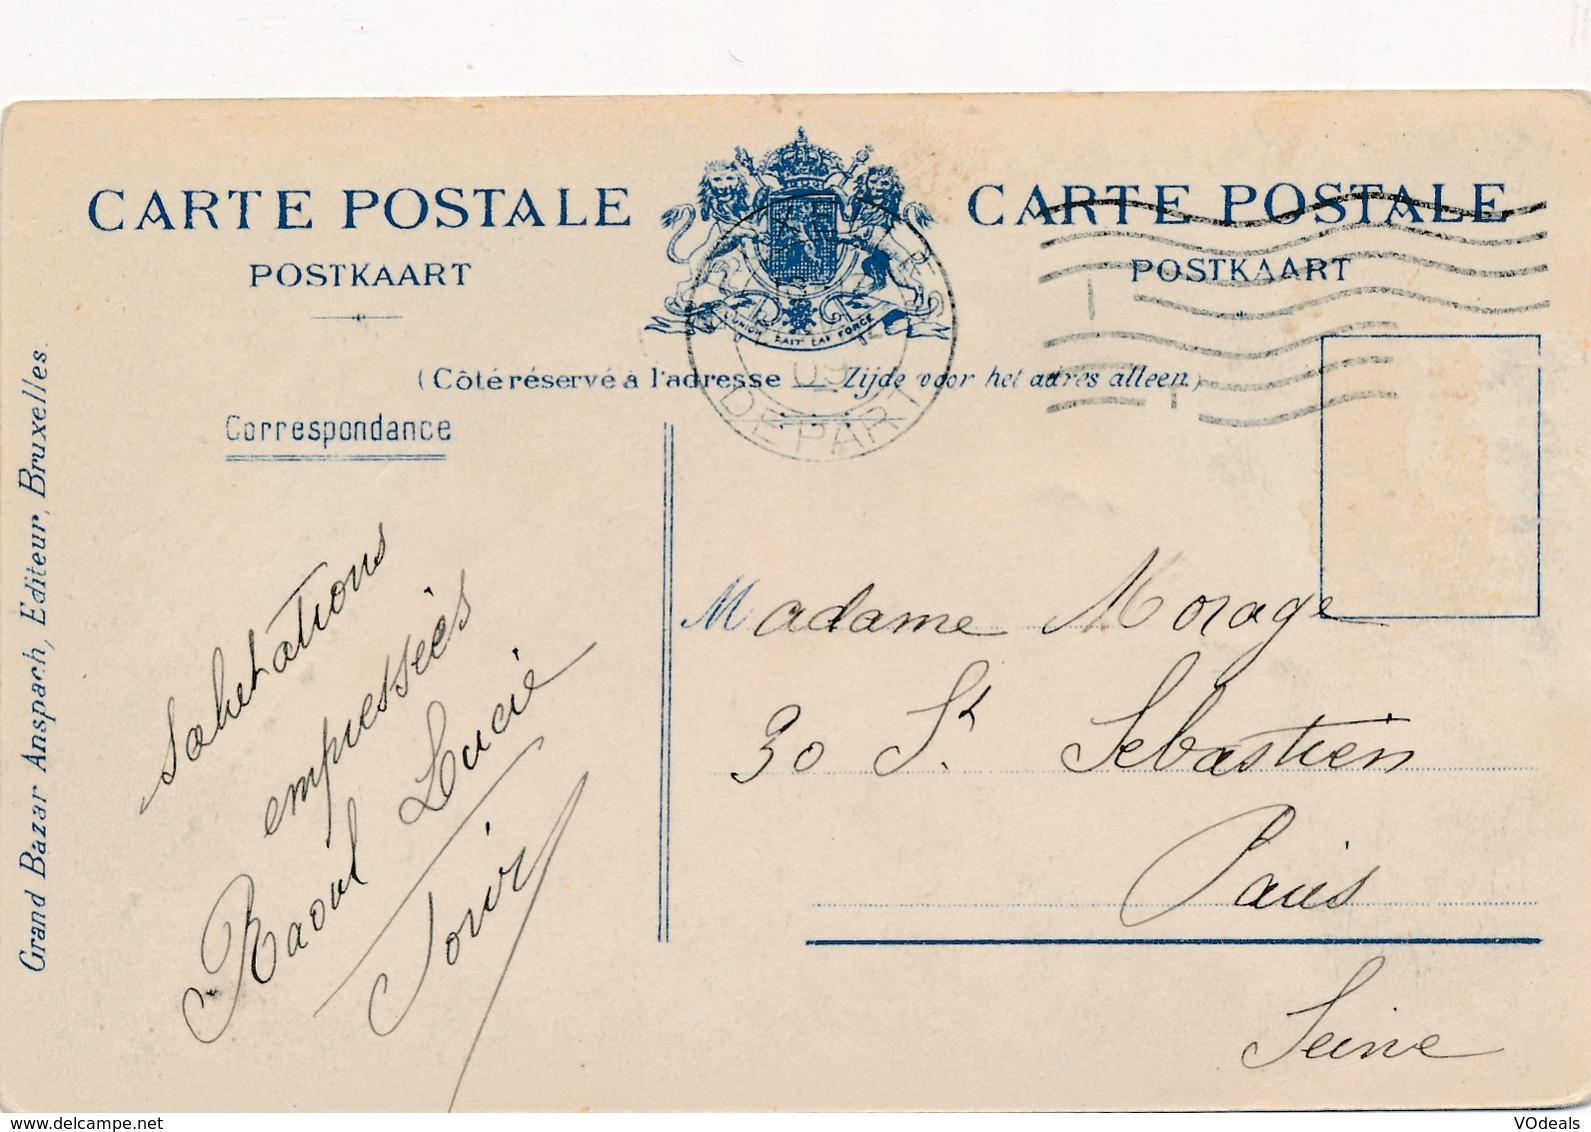 CARTE POSTALE
POSTKAART
CARTE POSTALE
POSTKAART
L'UNION FAIT LA FORCE
(Côté réservé à l'adresse — Zijde voor het adres alleen.)
DEPART
09
Correspondance
Grand Bazar Anspach, Editeur, Bruxelles.
Salutations
empressées
Raoul Lucie
Madame Morage
30 St Sebastien
Paris
Seine
www.delcampe.net
VOdeals